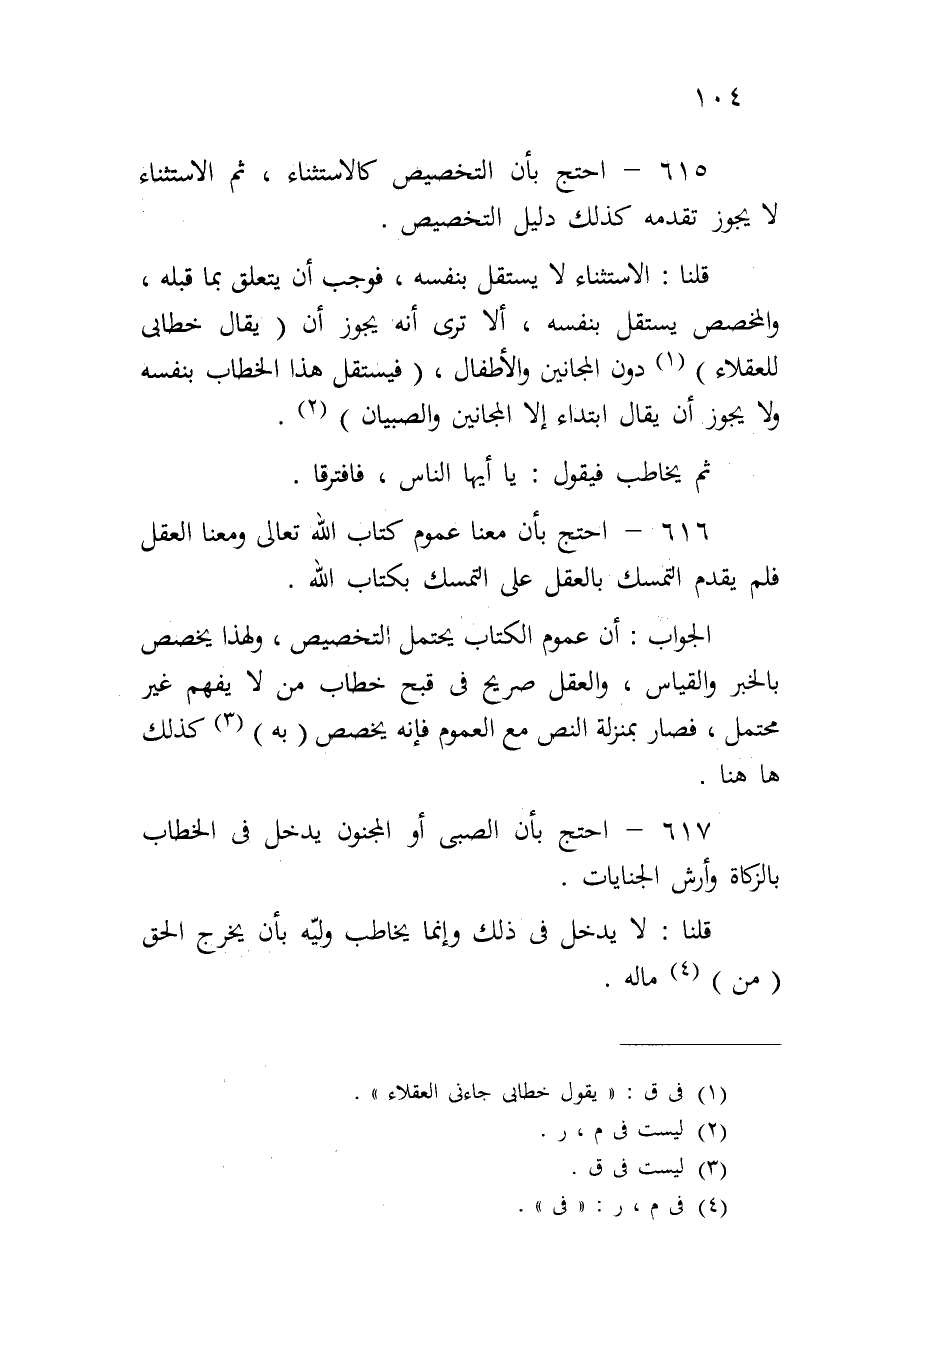 ١٠٤
٦١٥ – احتج بأن التخصيص كالاستثناء ، ثم الاستثناء
لا يجوز تقدمه كذلك دليل التخصيص .
قلنا : الاستثناء لا يستقل بنفسه ، فوجب أن يتعلق بما قبله ،
والمخصص يستقل بنفسه ، ألا ترى أنه يجوز أن ( يقال خطابى
للعقلاء ) (١) دون المجانين والأطفال ، ( فيستقل هذا الخطاب بنفسه
ولا يجوز أن يقال ابتداء إلا المجانين والصبيان ) (٢) .
ثم يخاطب فيقول : يا أيها الناس ، فافترقا .
٦١٦ – احتج بأن معنا عموم كتاب الله تعالى ومعنا العقل
فلم يقدم التمسك بالعقل على التمسك بكتاب الله .
الجواب : أن عموم الكتاب يحتمل التخصيص ، ولهذا يخصص
بالخبر والقياس ، والعقل صريح فى قبح خطاب من لا يفهم غير
محتمل ، فصار بمنزلة النص مع العموم فإنه يخصص ( به ) (٣) كذلك
ها هنا .
٦١٧ – احتج بأن الصبى أو المجنون يدخل فى الخطاب
بالزكاة وأرش الجنايات .
قلنا : لا يدخل فى ذلك وإنما يخاطب وليّه بأن يخرج الحق
( من ) (٤) ماله .
(١) فى ق : « يقول خطابى جاءنى العقلاء » .
(٢) ليست فى م ، ر .
(٣) ليست فى ق .
(٤) فى م ، ر : « فى » .